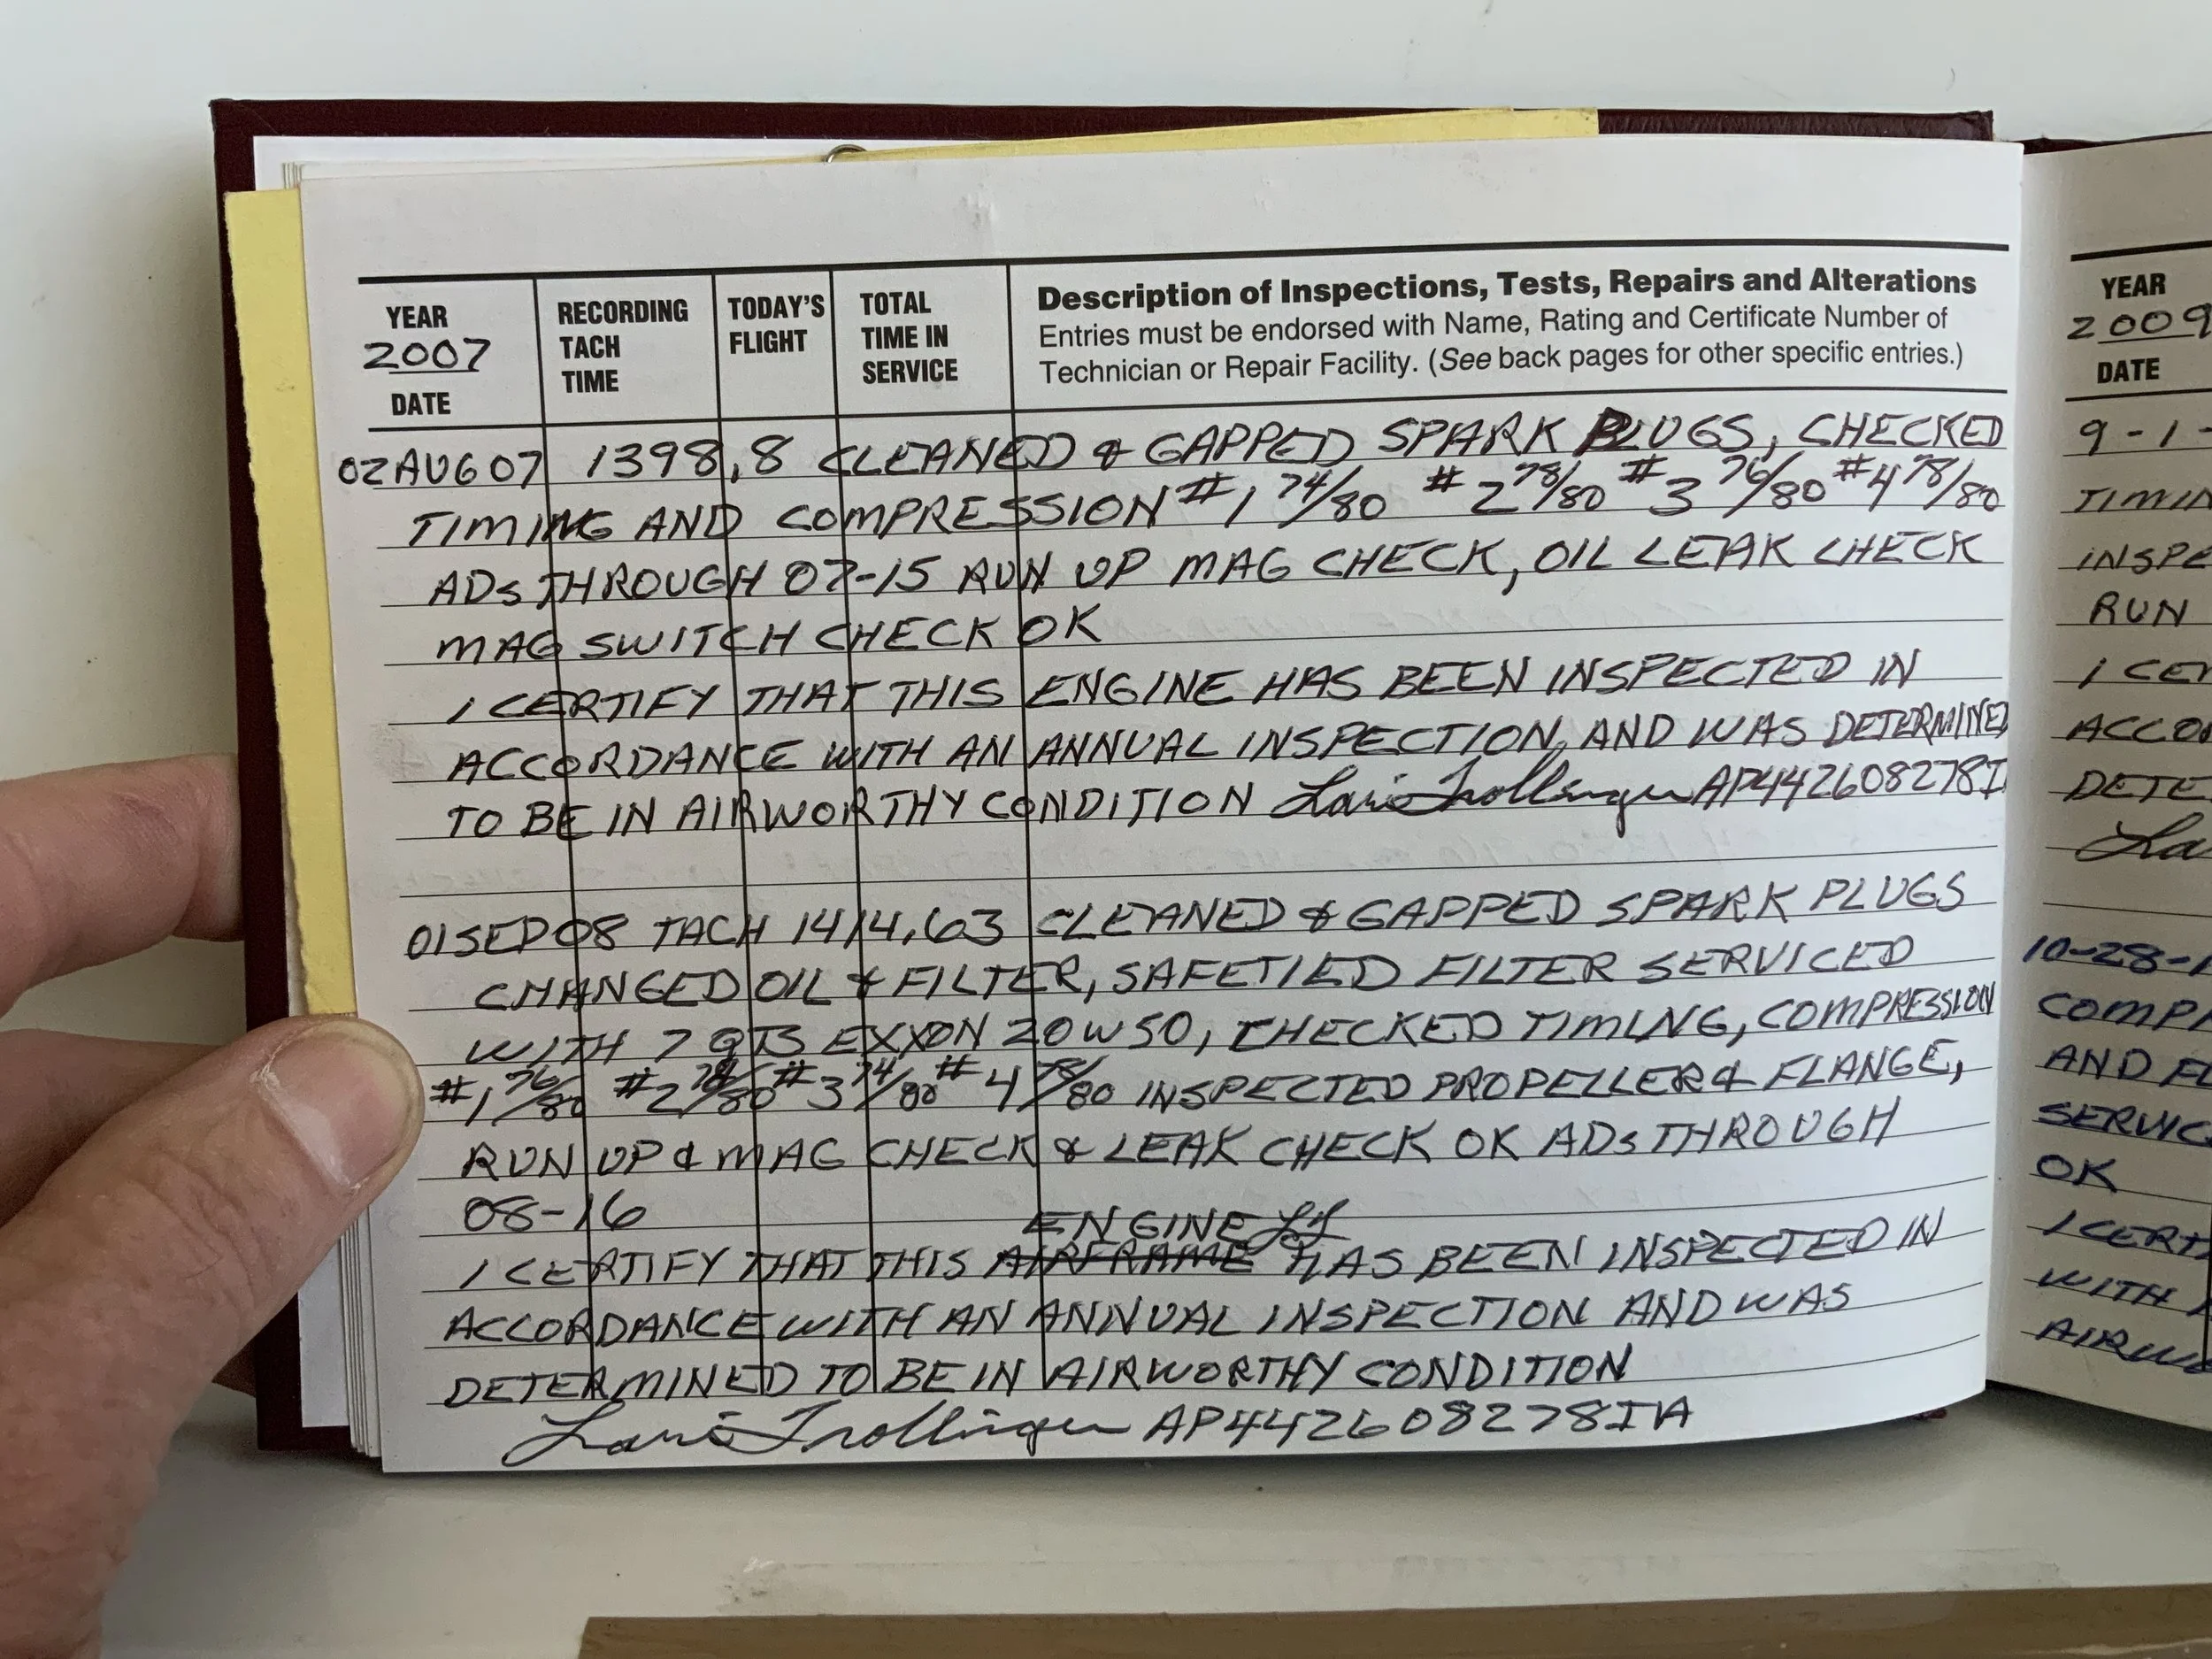 YEAR
2007
DATE
RECORDING
TACH
TIME
TODAY'S
FLIGHT
TOTAL
TIME IN
SERVICE
Description of Inspections, Tests, Repairs and Alterations
Entries must be endorsed with Name, Rating and Certificate Number of
Technician or Repair Facility. (See back pages for other specific entries.)
02AUG07 1398,8 CLEANED & GAPPED SPARK PLUGS, CHECKED
TIMING AND COMPRESSION #1 74/80 #2 78/80 #3 76/80 #4 78/80
ADs THROUGH 07-15 RUN UP MAG CHECK, OIL LEAK CHECK
MAG SWITCH CHECK OK
I CERTIFY THAT THIS ENGINE HAS BEEN INSPECTED IN
ACCORDANCE WITH AN ANNUAL INSPECTION, AND WAS DETERMINED
TO BE IN AIRWORTHY CONDITION Laris Trollinger AP442608278I
01SEP08 TACH 1414.63 CLEANED & GAPPED SPARK PLUGS
CHANGED OIL & FILTER, SAFETIED FILTER SERVICED
WITH 7 QTS EXXON 20W50, CHECKED TIMING, COMPRESSION
#1 76/80 #2 /80 #3 74/80 #4 78/80 INSPECTED PROPELLER & FLANGE,
RUN UP & MAG CHECK & LEAK CHECK OK ADs THROUGH
08-16
ENGINE LT
I CERTIFY THAT THIS AIRFRAME HAS BEEN INSPECTED IN
ACCORDANCE WITH AN ANNUAL INSPECTION AND WAS
DETERMINED TO BE IN AIRWORTHY CONDITION
Laris Trollinger AP442608278IA
YEAR
2009
DATE
9-1-
TIMIN
INSPE
RUN
I CER
ACCO
DETE
La
10-28-1
COMP
AND FL
SERVIC
OK
I CERT
WITH A
AIRW